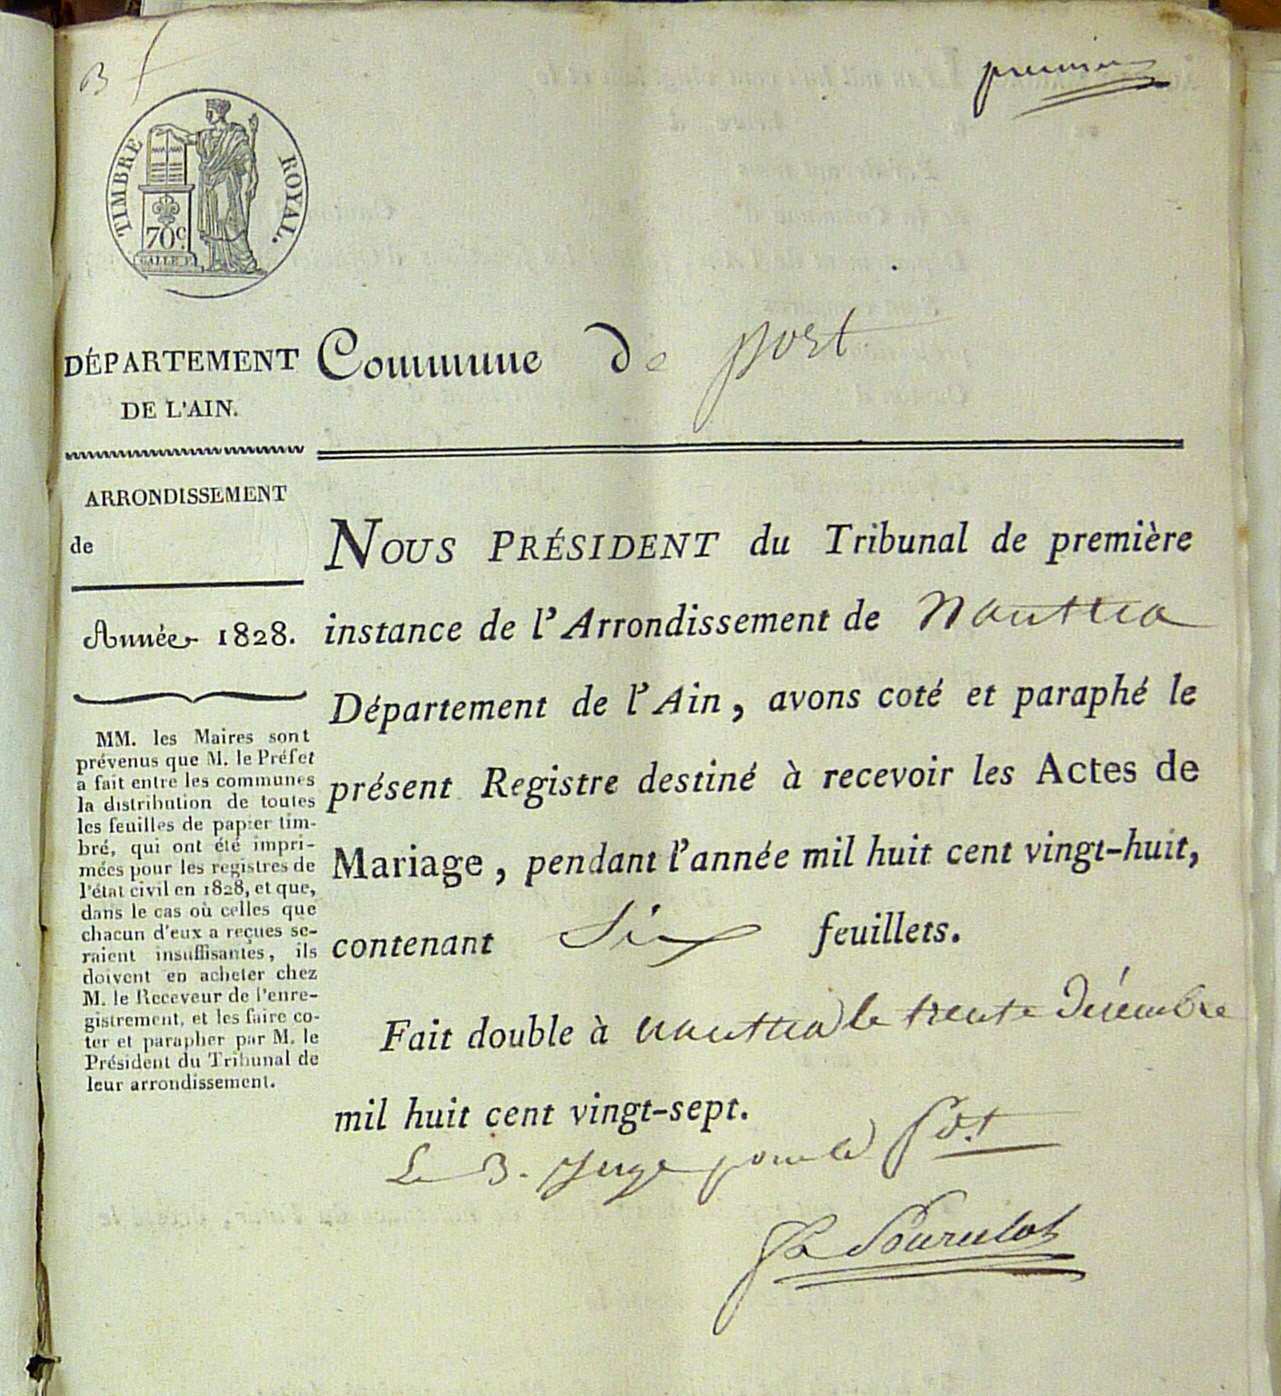 B
premier
TIMBRE ROYAL.
70c.
GALLE F.
DÉPARTEMENT
DE L'AIN.
Commune de port
ARRONDISSEMENT
de
Année 1828.
MM. les Maires sont
prévenus que M. le Préfet
a fait entre les communes
la distribution de toutes
les feuilles de papier tim-
bré, qui ont été impri-
mées pour les registres de
l'état civil en 1828, et que,
dans le cas où celles que
chacun d'eux a reçues se-
raient insuffisantes, ils
doivent en acheter chez
M. le Receveur de l'enre-
gistrement, et les faire co-
ter et parapher par M. le
Président du Tribunal de
leur arrondissement.
NOUS PRÉSIDENT du Tribunal de première
instance de l'Arrondissement de Nantua
Département de l'Ain, avons coté et paraphé le
présent Registre destiné à recevoir les Actes de
Mariage, pendant l'année mil huit cent vingt-huit,
contenant Six feuillets.
Fait double à nantua le trente Décembre
mil huit cent vingt-sept.
Le 3. Juge pour le Pdt